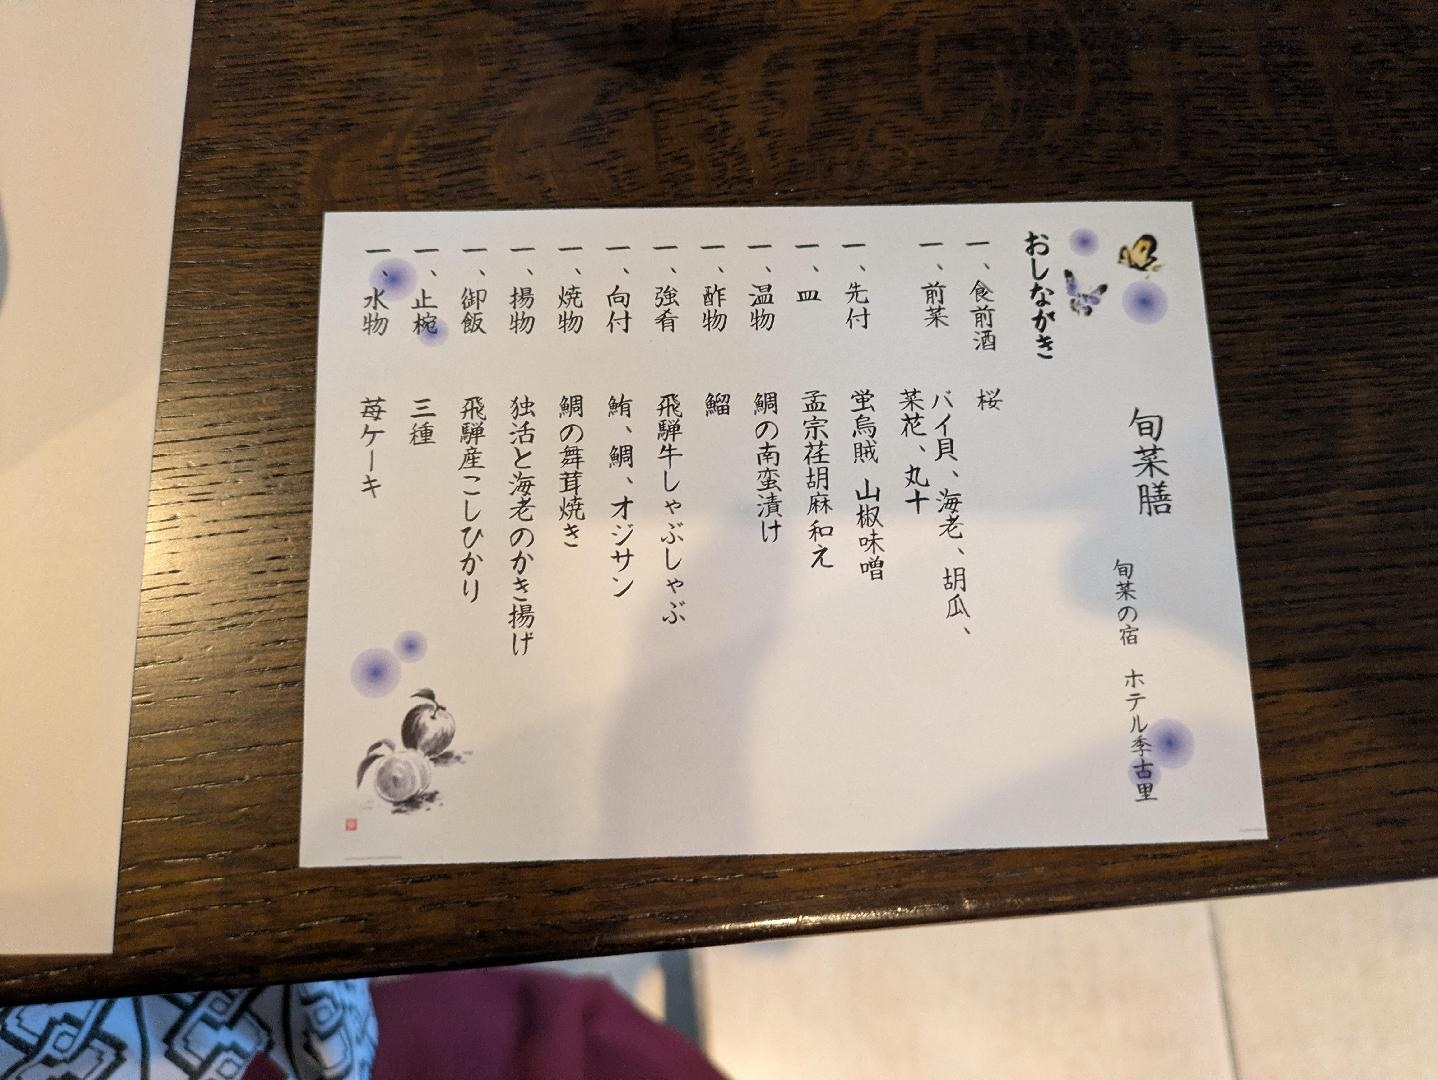 旬菜膳
旬菜の宿 ホテル季古里
おしながき
一、食前酒 桜
一、前菜 バイ貝、海老、胡瓜、
菜花、丸十
一、先付 蛍烏賊 山椒味噌
一、皿 孟宗荏胡麻和え
一、温物 鯛の南蛮漬け
一、酢物 鰡
一、強肴 飛騨牛しゃぶしゃぶ
一、向付 鮪、鯛、オジサン
一、焼物 鯛の舞茸焼き
一、揚物 独活と海老のかき揚げ
一、御飯 飛騨産こしひかり
一、止椀 三種
一、水物 苺ケーキ